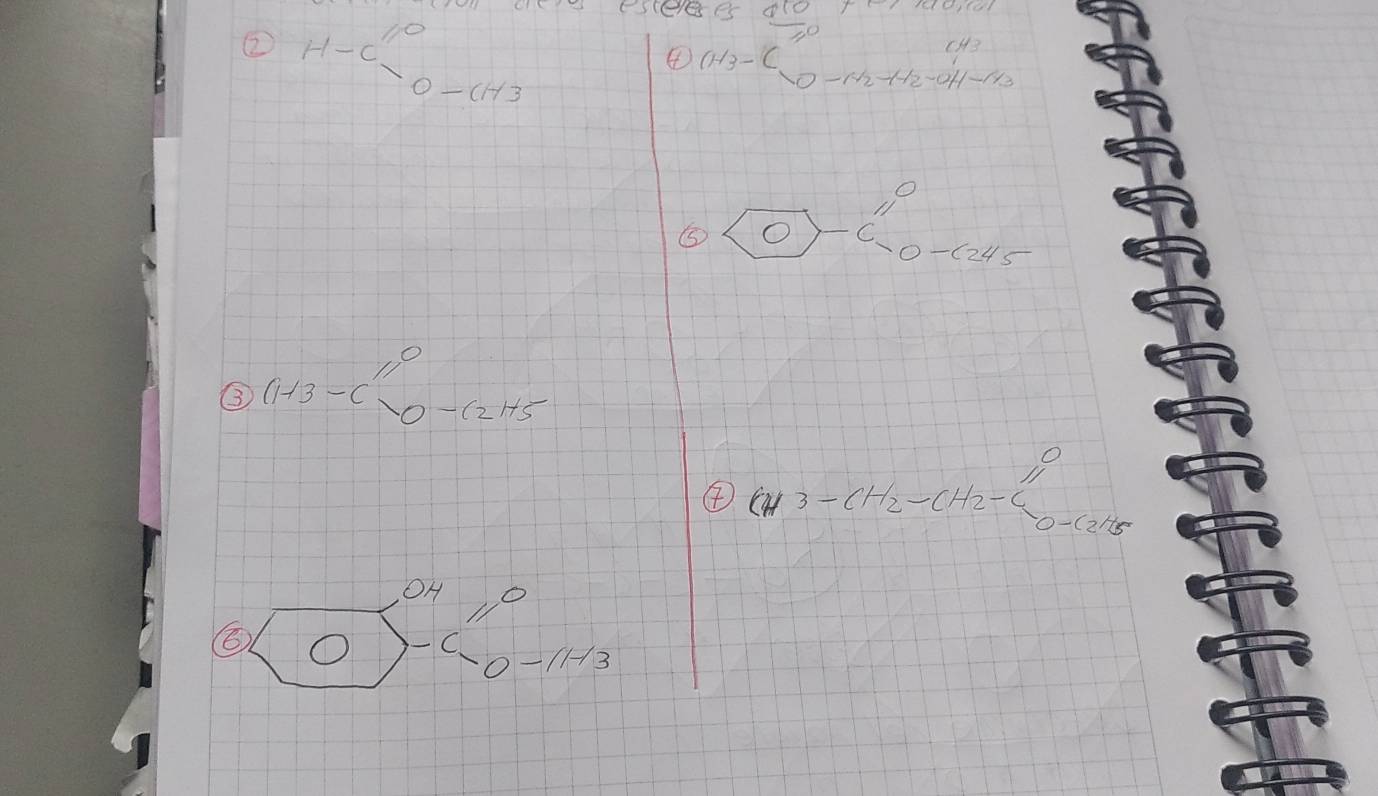 esteres es ato
② H-C=O
O-CH3
④ CH3-C=O
CH3
O-CH2-CH2-OH-CH3
⑤ O -C=O
O-C2H5
③ CH3-C=O
O-C2H5
⑦ CH3-CH2-CH2-C=O
O-C2H5
OH
⑥ O -C=O
O-CH3